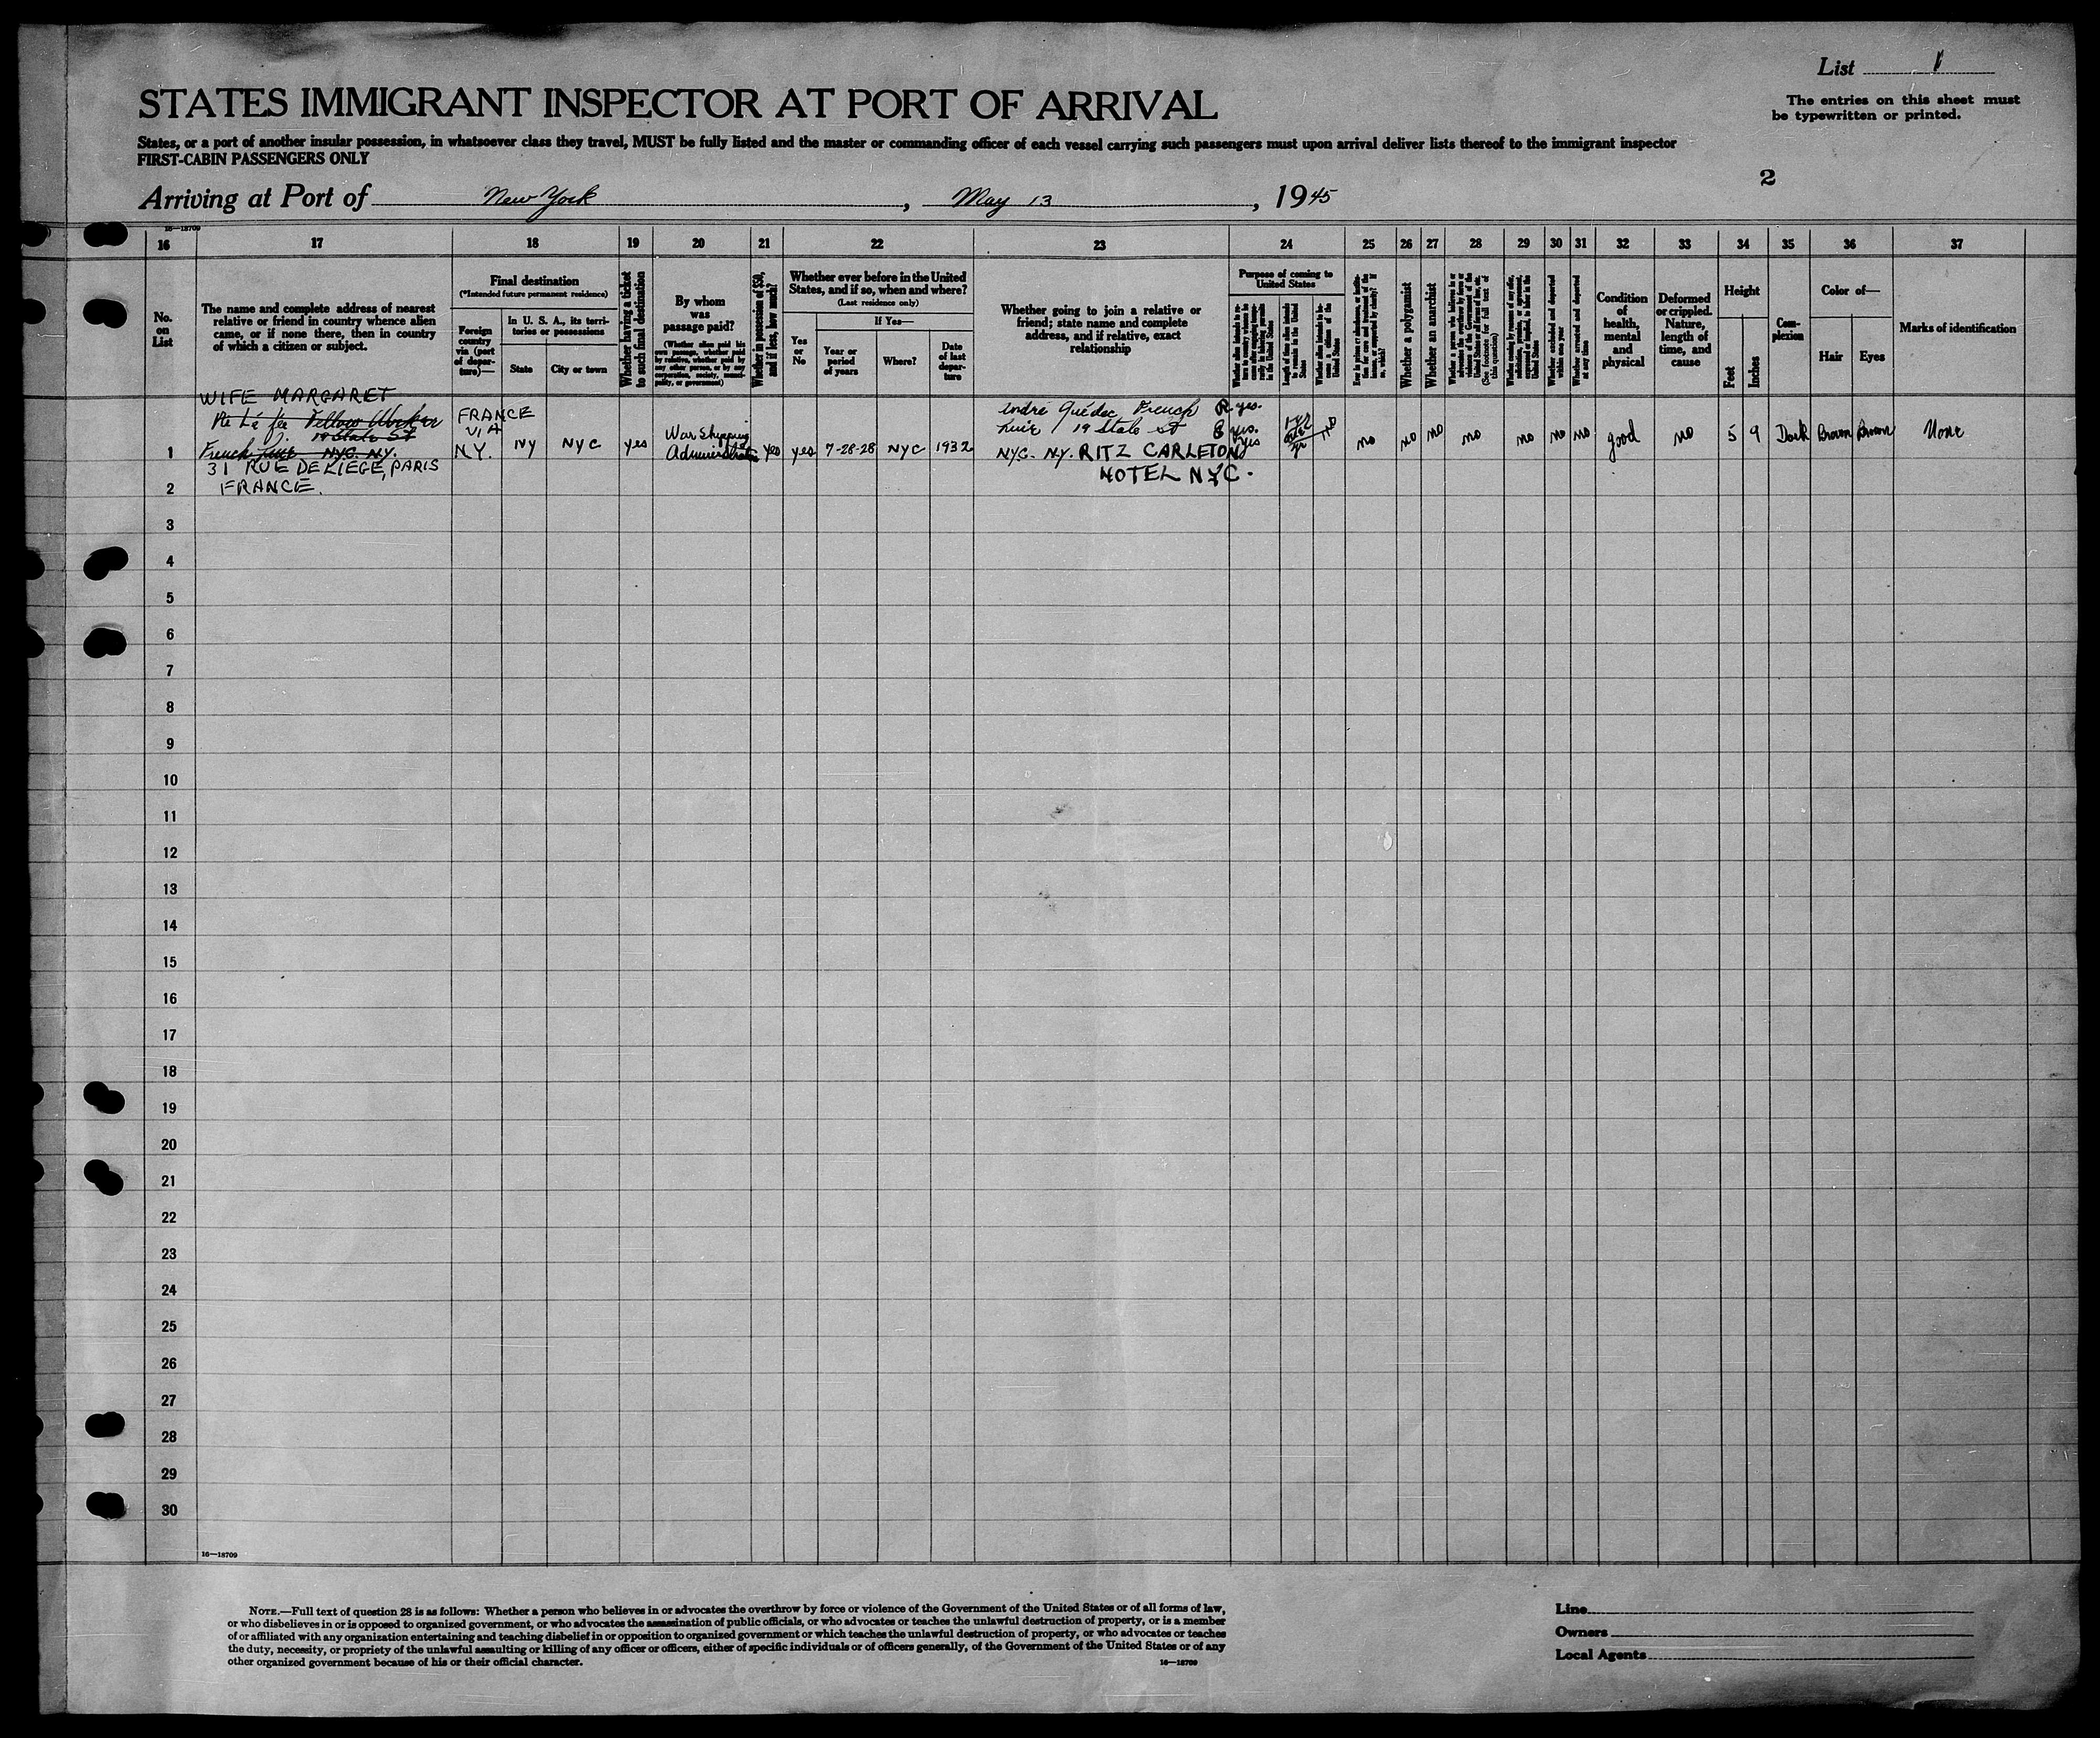 List 1
The entries on this sheet must
be typewritten or printed.
STATES IMMIGRANT INSPECTOR AT PORT OF ARRIVAL
States, or a port of another insular possession, in whatsoever class they travel, MUST be fully listed and the master or commanding officer of each vessel carrying such passengers must upon arrival deliver lists thereof to the immigrant inspector
FIRST-CABIN PASSENGERS ONLY
2
Arriving at Port of New York, May 13, 1945
16—18709
16 17 18 19 20 21 22 23 24 25 26 27 28 29 30 31 32 33 34 35 36 37
No.
on
List
The name and complete address of nearest
relative or friend in country whence alien
came, or if none there, then in country
of which a citizen or subject.
Final destination
(*Intended future permanent residence)
Foreign
country
via (port
of depar-
ture)—
In U. S. A., its terri-
tories or possessions
State
City or town
Whether having a ticket
to such final destination
By whom
was
passage paid?
(Whether alien paid his
own passage, whether paid
by relative, whether paid by
any other person, or by any
corporation, society, munici-
pality, or government)
Whether in possession of $50,
and if less, how much?
Whether ever before in the United
States, and if so, when and where?
(Last residence only)
Yes
or
No
If Yes—
Year or
period
of years
Where?
Date
of last
depar-
ture
Whether going to join a relative or
friend; state name and complete
address, and if relative, exact
relationship
Purpose of coming to
United States
Length of time alien intends
to remain in the United
States
Whether a polygamist
Whether an anarchist
(See footnote for full text of
this question)
Whether arrested and deported
at any time
Condition
of
health,
mental
and
physical
Deformed
or crippled.
Nature,
length of
time, and
cause
Height
Feet
Inches
Com-
plexion
Color of—
Hair
Eyes
Marks of identification
WIFE MARGARET
Fellow Worker
19 State St
French Line NYC. NY.
31 RUE DE LIEGE, PARIS
FRANCE.
FRANCE
VIA
N.Y.
NY
NYC
yes
War Shipping
Administration
yes
yes
7-28-28
NYC
1932
André Quédec French
Line 19 State St
NYC. N.Y. RITZ CARLETON
HOTEL NYC.
R yes.
yes.
yes
no
no
no
no
no
no
no
no
good
no
5
9
Dark
Brown
Brown
None
1
2
3
4
5
6
7
8
9
10
11
12
13
14
15
16
17
18
19
20
21
22
23
24
25
26
27
28
29
30
16—18709
NOTE.—Full text of question 28 is as follows: Whether a person who believes in or advocates the overthrow by force or violence of the Government of the United States or of all forms of law,
or who disbelieves in or is opposed to organized government, or who advocates the assassination of public officials, or who advocates or teaches the unlawful destruction of property, or is a member
of or affiliated with any organization entertaining and teaching disbelief in or opposition to organized government or which teaches the unlawful destruction of property, or who advocates or teaches
the duty, necessity, or propriety of the unlawful assaulting or killing of any officer or officers, either of specific individuals or of officers generally, of the Government of the United States or of any
other organized government because of his or their official character.
16—18709
Line
Owners
Local Agents